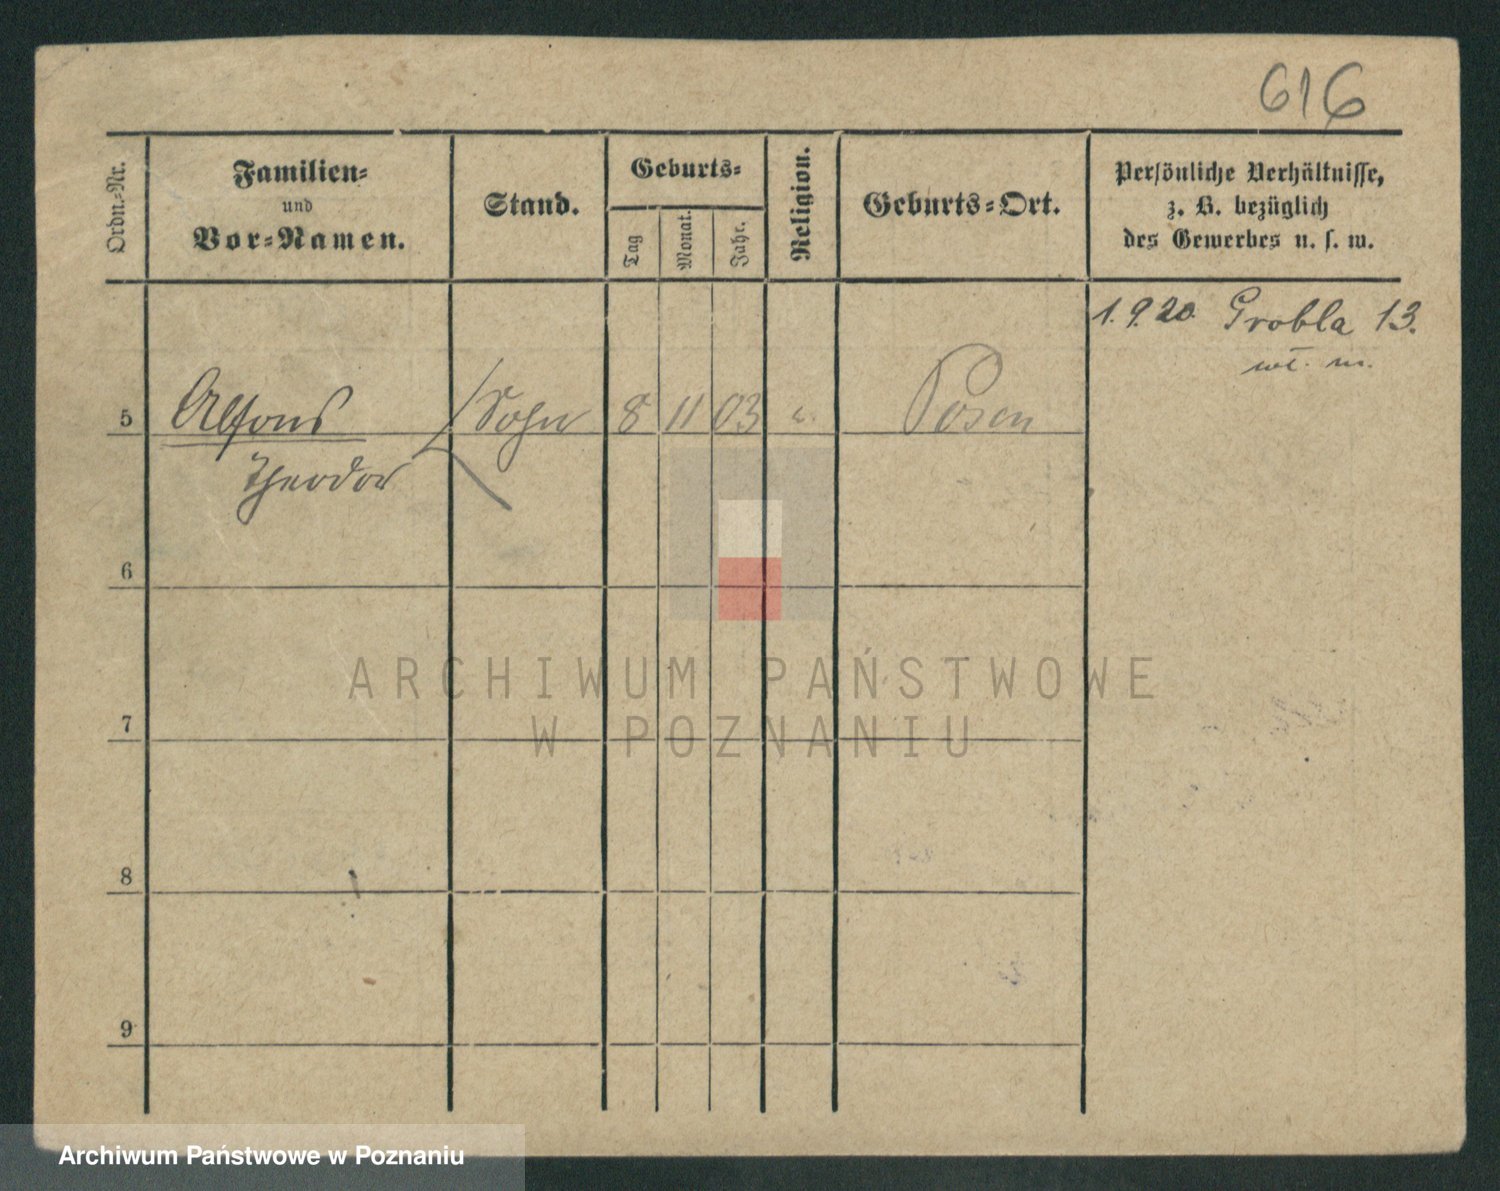 616
Ordn.-Nr.
Familien-
und
Vor-Namen.
Stand.
Geburts-
Tag
Monat.
Jahr.
Religion.
Geburts-Ort.
Persönliche Verhältnisse,
z. B. bezüglich
des Gewerbes u. s. w.
1.9.20. Grobla 13.
5 Alfons Sohn 8 11 03 Posen
Theodor
6
7
8
9
ARCHIWUM PAŃSTWOWE
W POZNANIU
Archiwum Państwowe w Poznaniu